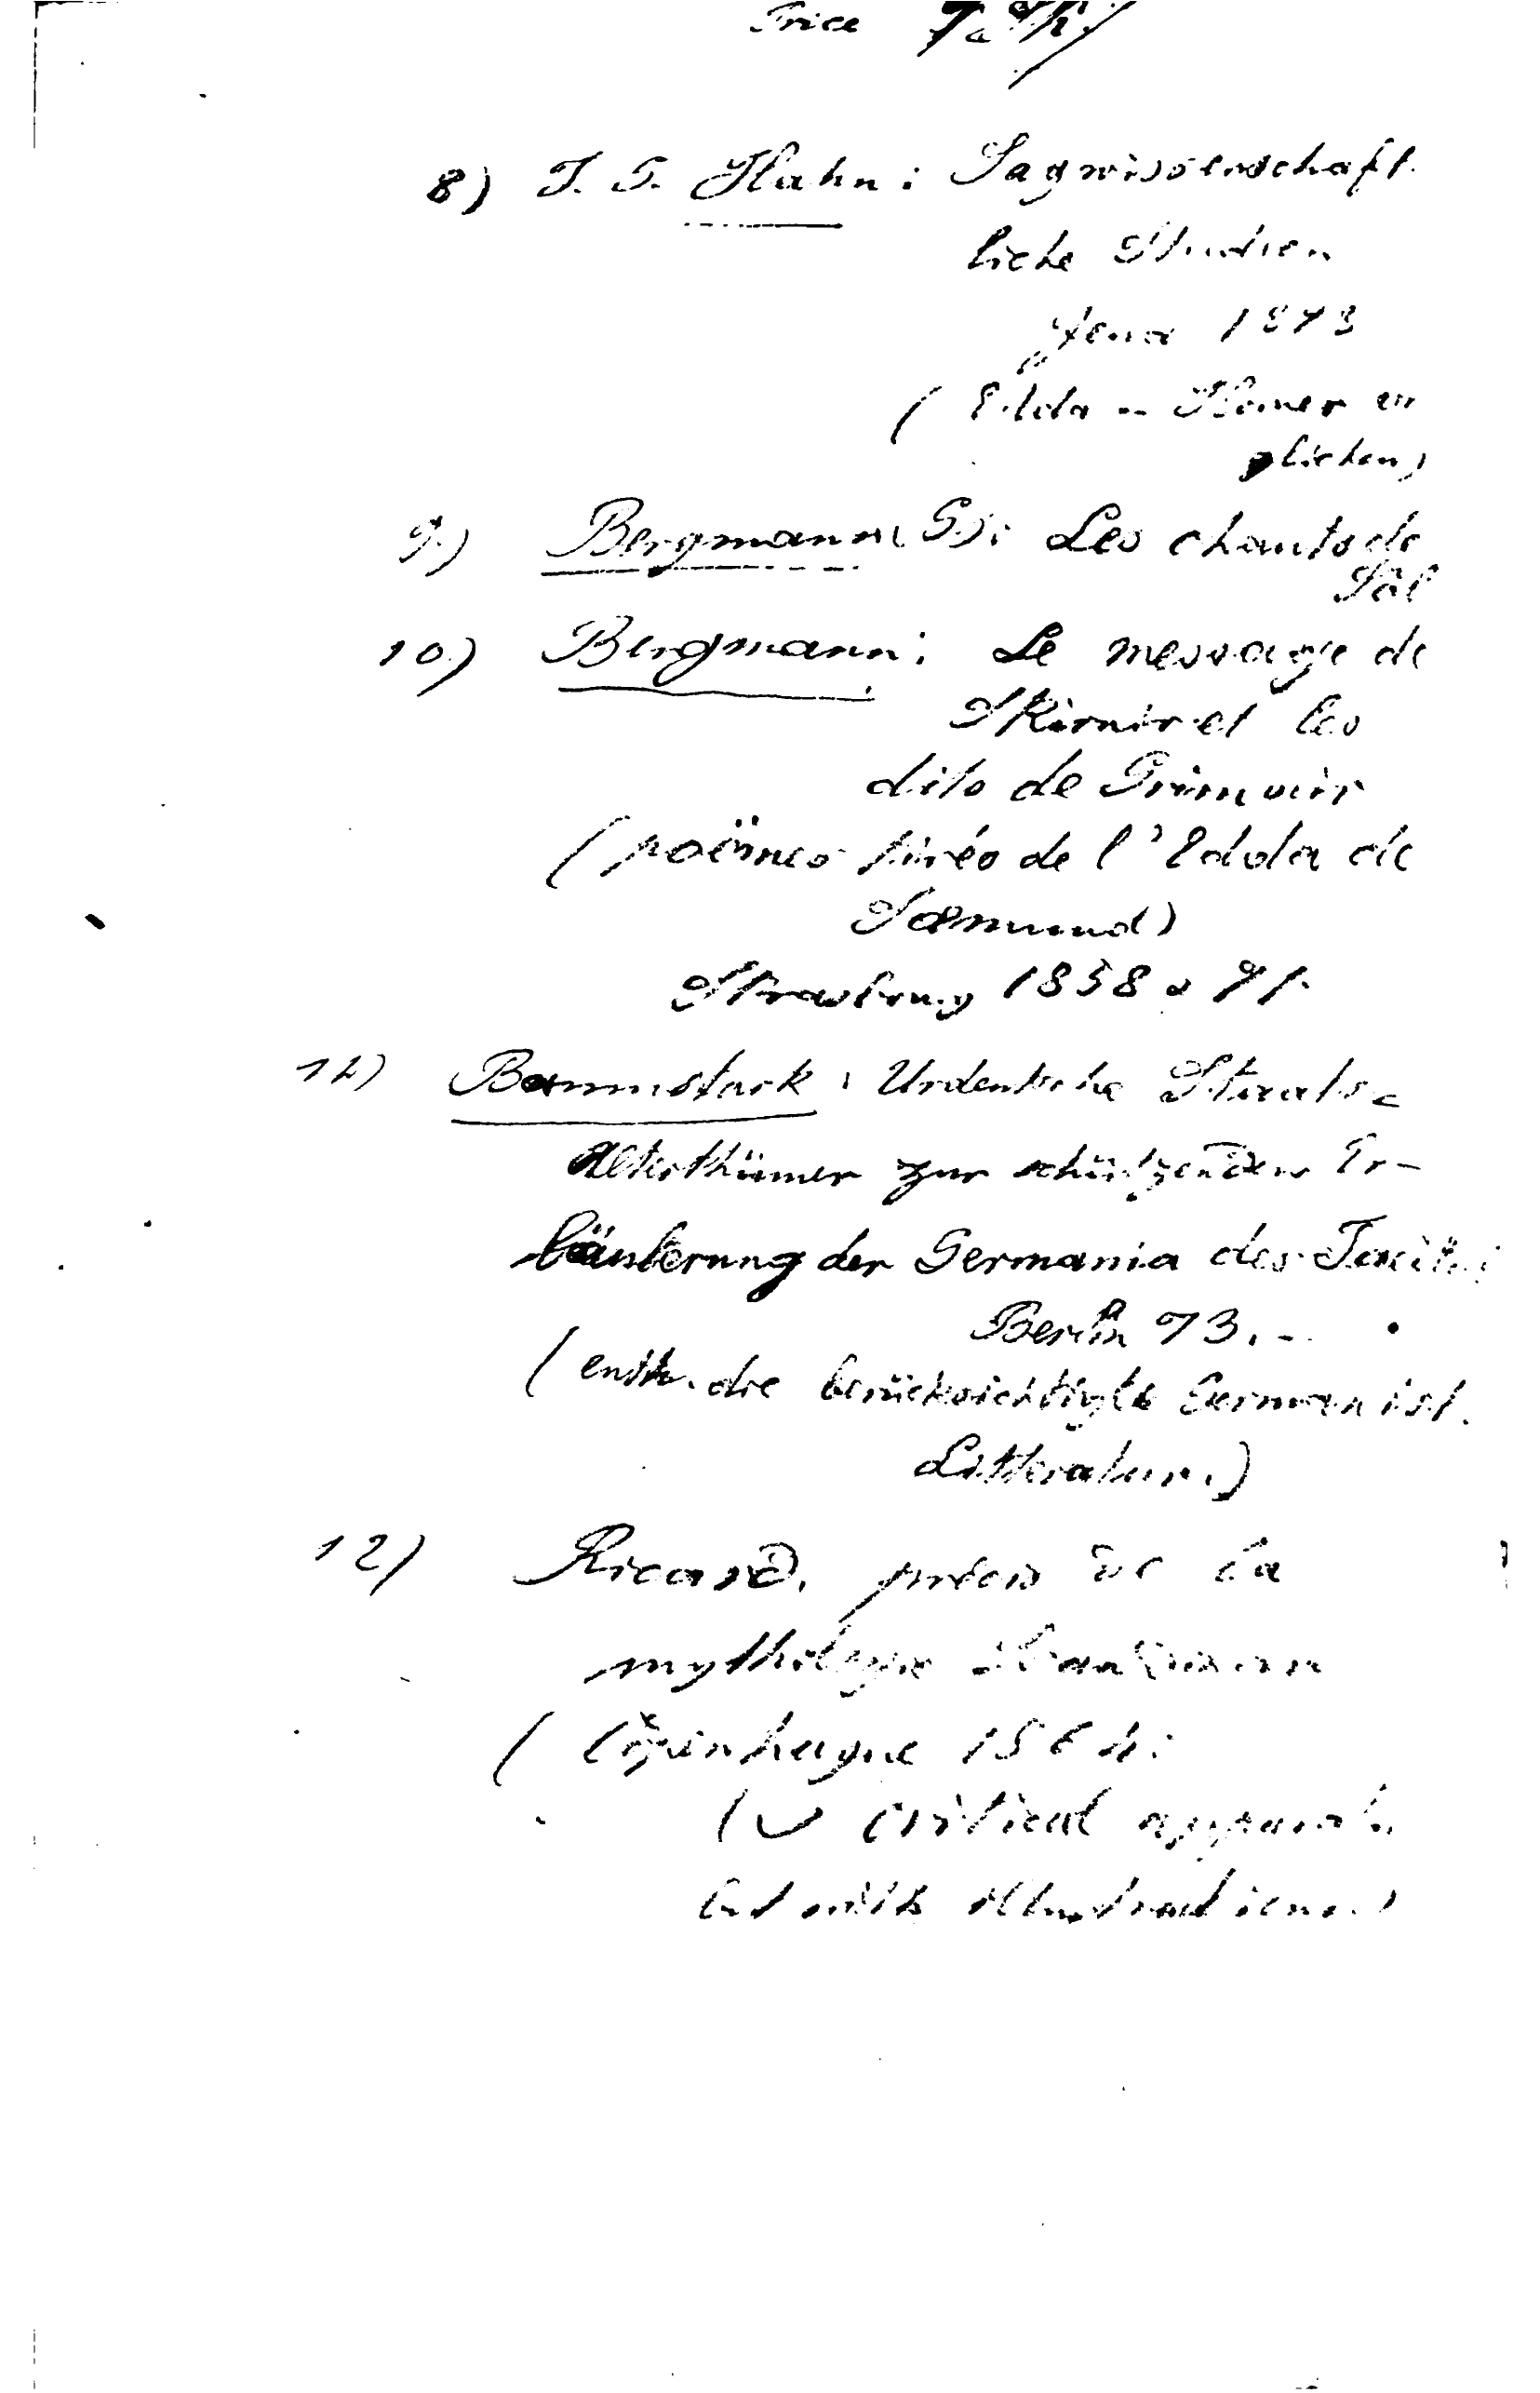 Price
8) J. G. Hahn: Sagwissenschaft.
liche Studien
Jena 1873
( Edda — Homer
glichen)
9.) Bergmann (G.): Les chants de
Sôl
10.) Bergmann: Le message de
Skirnir et les
dits de Grimnir
(poëmes tirés de l'Edda de
Sæmund)
Strasbourg 1858 & 71.
11) Baumstark: Urdeutsche Staats-
Alterthümer zur schützenden Er-
läuterung der Germania des Tacitus
Berlin 73.-
(enth. die berücksichtigte Germanist.
Litteratur.)
12) Ricard, précis de la
mythologie
( Copenhague 18
critical
but with illustrations)